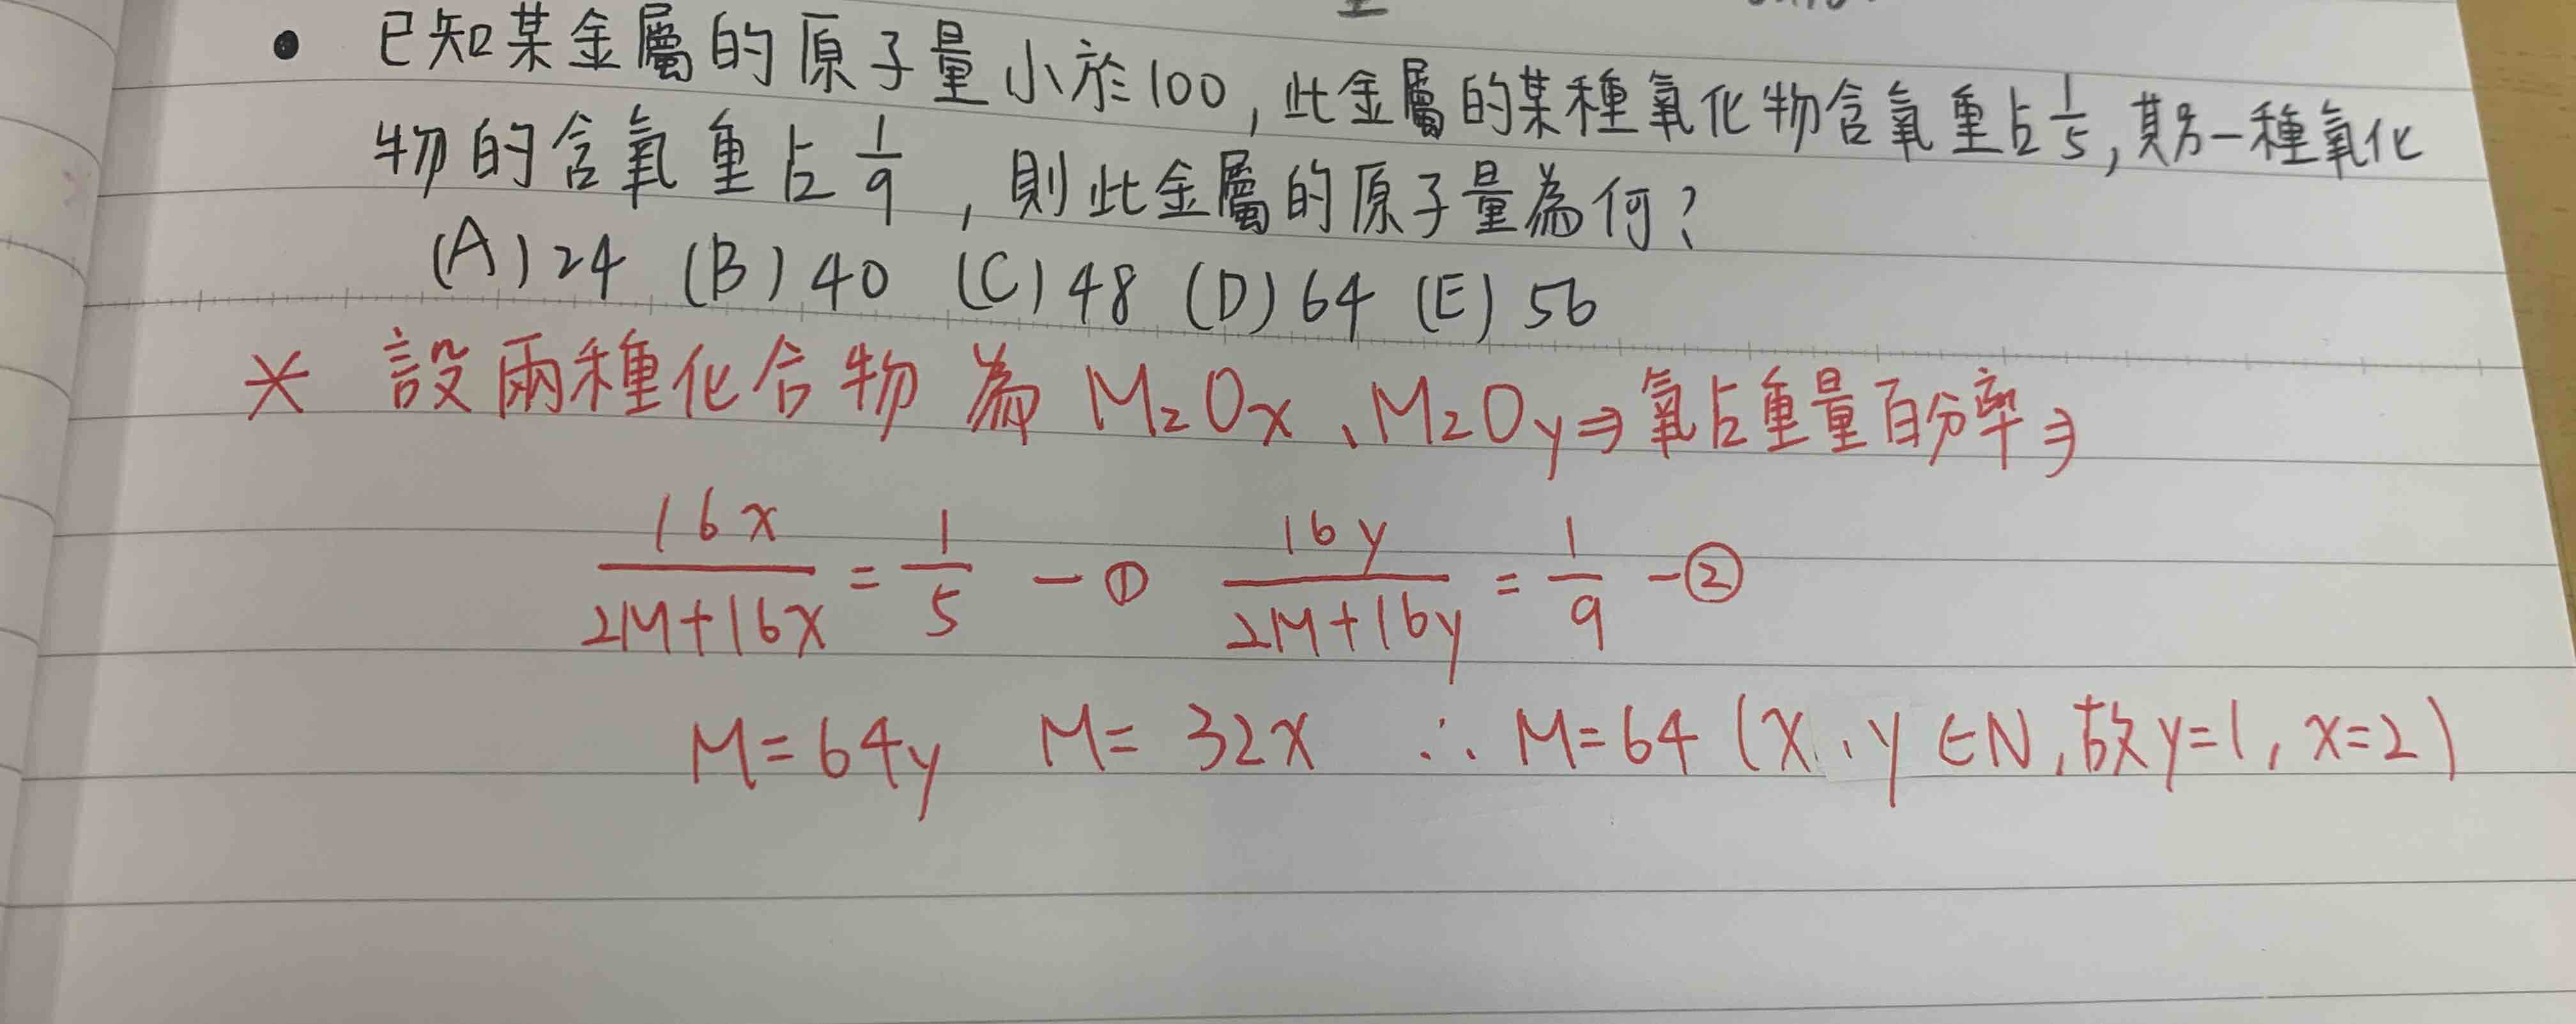 • 已知某金屬的原子量小於100,此金屬的某種氧化物含氧重占1/5,其另一種氧化
物的含氧重占1/9,則此金屬的原子量為何?
(A)24 (B)40 (C)48 (D)64 (E)56
* 設兩種化合物為 M₂Oₓ、M₂Oy⇒氧占重量百分率⇒
16x/(2M+16x) = 1/5 -① 16y/(2M+16y) = 1/9 -②
M=64y M=32x ∴ M=64 (x、y∈N,故y=1, x=2)